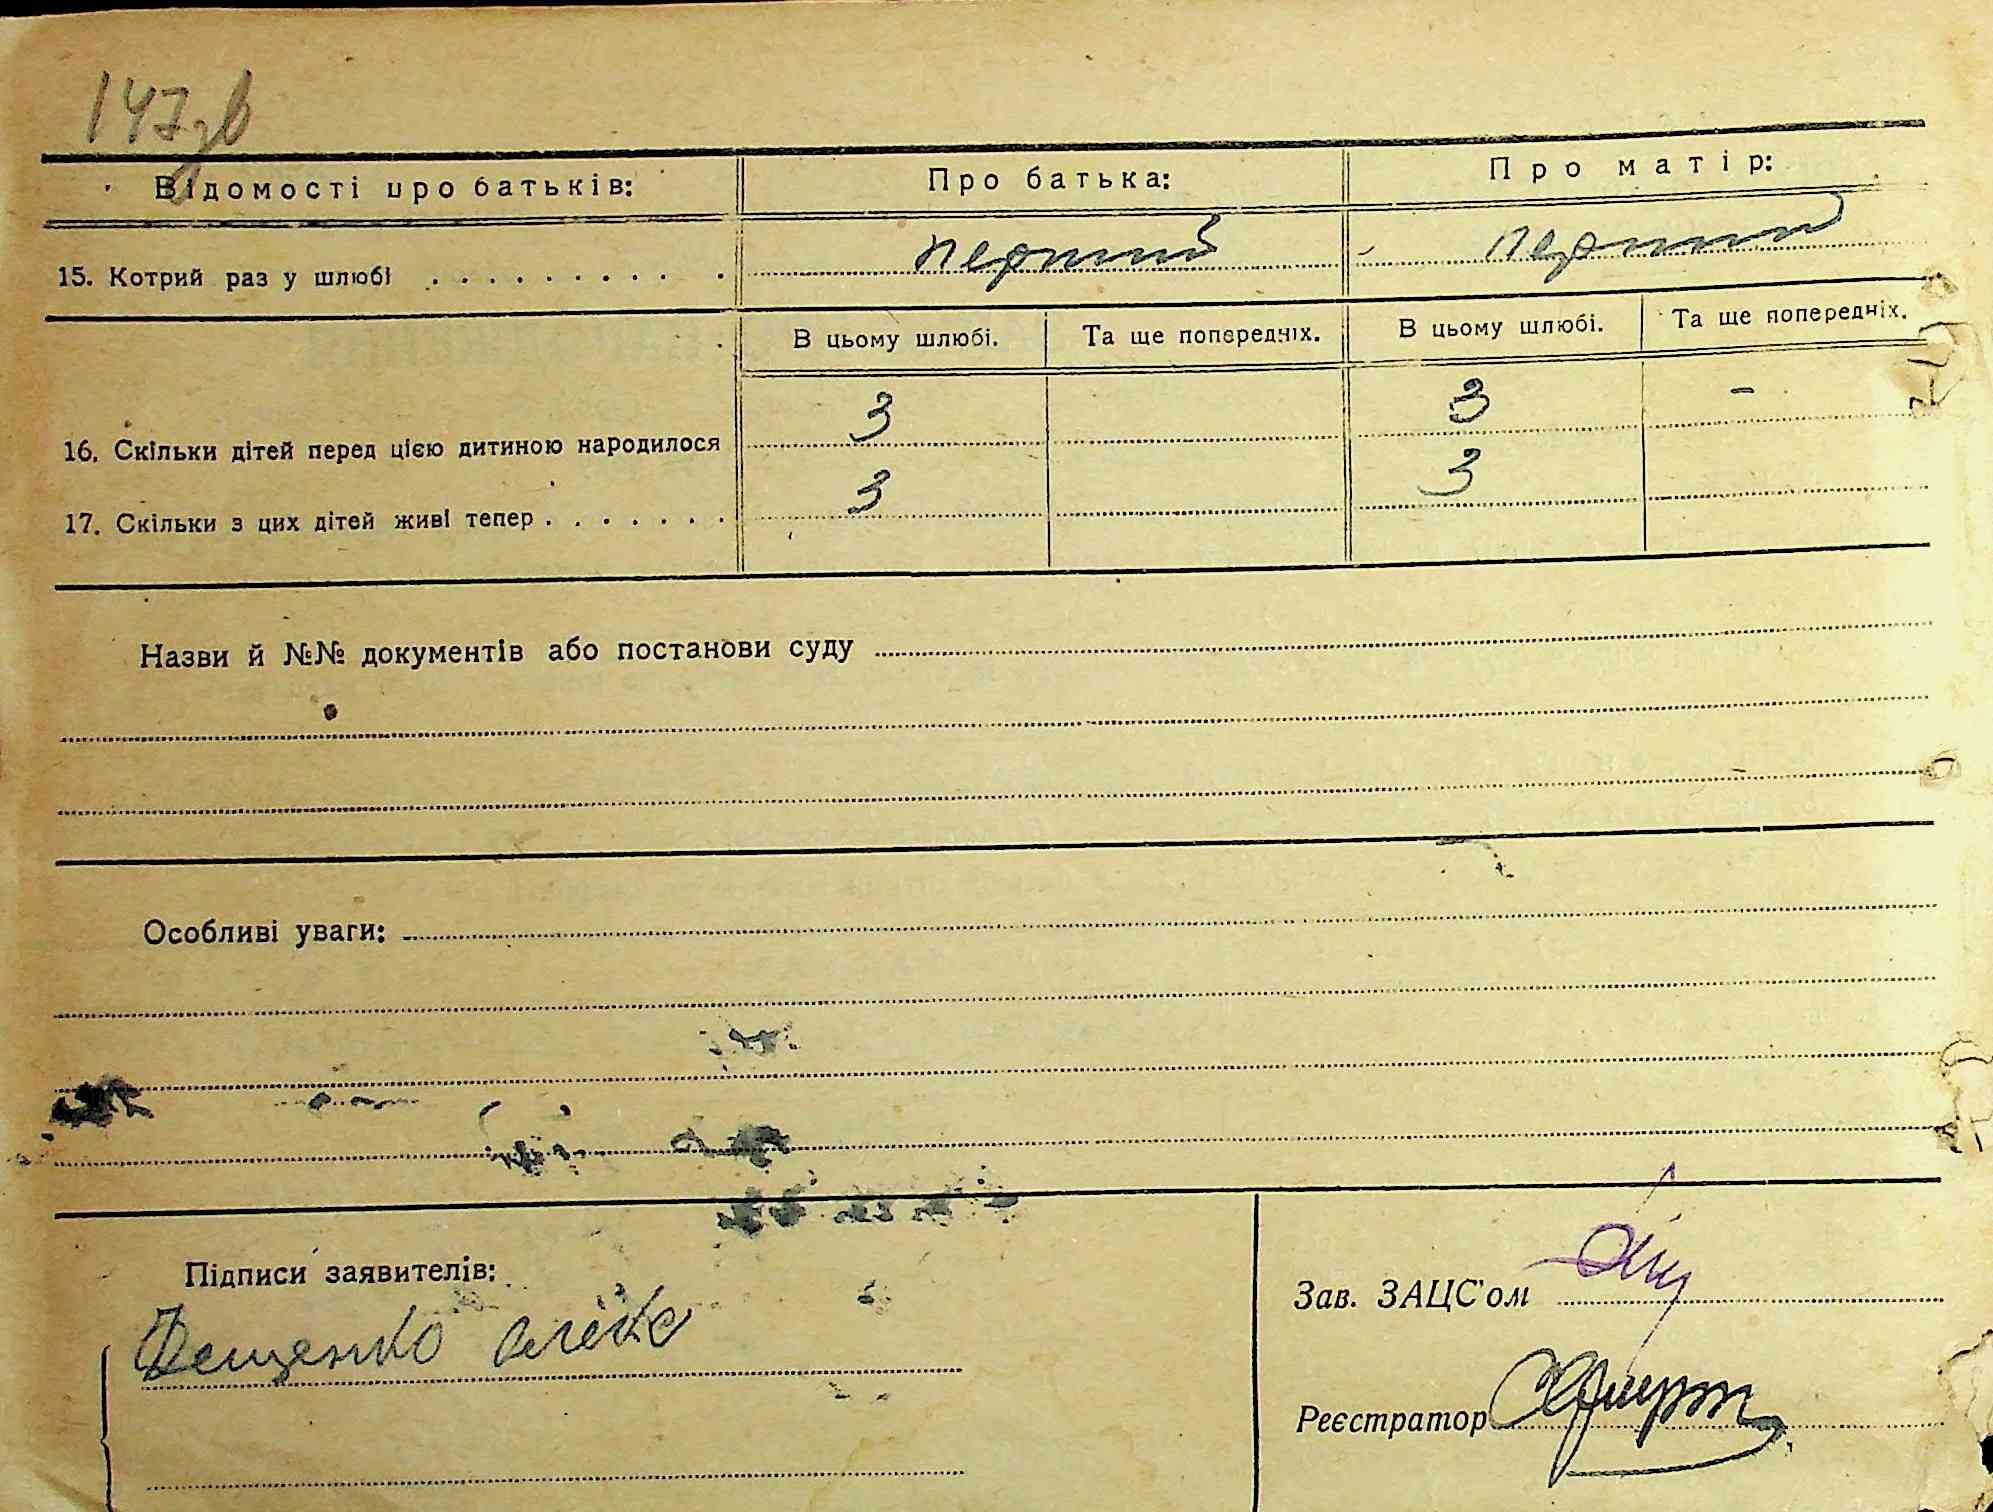 147зв
Відомості про батьків: Про батька: Про матір:
15. Котрий раз у шлюбі . . . . . . . . . . перший перший
В цьому шлюбі. Та ще попередніх. В цьому шлюбі. Та ще попередніх.
16. Скільки дітей перед цією дитиною народилося 3 3 -
17. Скільки з цих дітей живі тепер . . . . . . . 3 3
Назви й №№ документів або постанови суду
Особливі уваги:
Підписи заявителів:
Зав. ЗАЦС'ом
Дещенко
Реєстратор